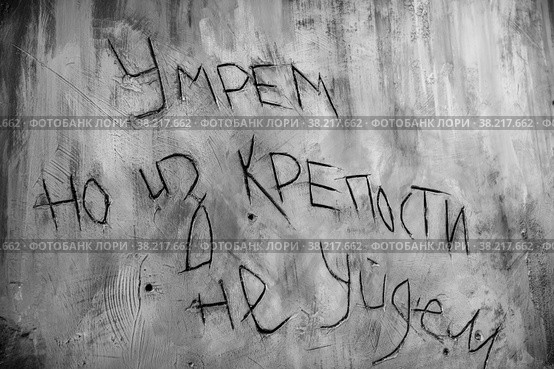 Умрем
38.217.662 · ФОТОБАНК ЛОРИ · 38.217.662 · ФОТОБАНК ЛОРИ · 38.217.662 · ФОТОБАНК ЛОРИ · 38.217.662
но из крепости
38.217.662 · ФОТОБАНК ЛОРИ · 38.217.662 · ФОТОБАНК ЛОРИ · 38.217.662 · ФОТОБАНК ЛОРИ · 38.217.662
не уйдем